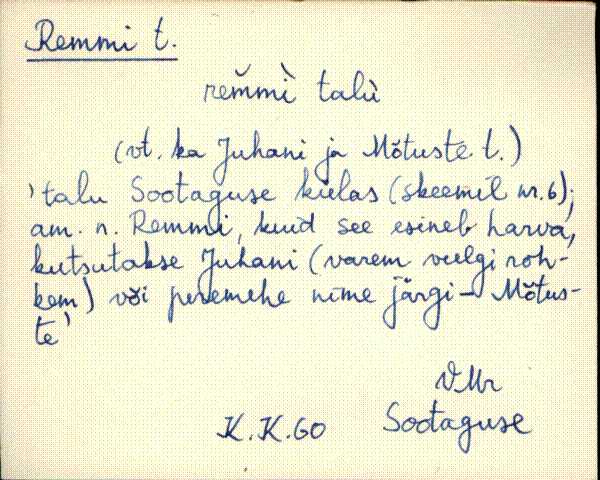 Remmi t.
rem̆mì talù
(vt. ka Juhani ja Mõtuste t.)
'talu Sootaguse külas (skeemil nr. 6);
am. n. Remmi, kuid see esineb harva,
kutsutakse Juhani (varem veelgi roh-
kem) või peremehe nime järgi – Mõtus-
te'
VMr
K.K.60 Sootaguse